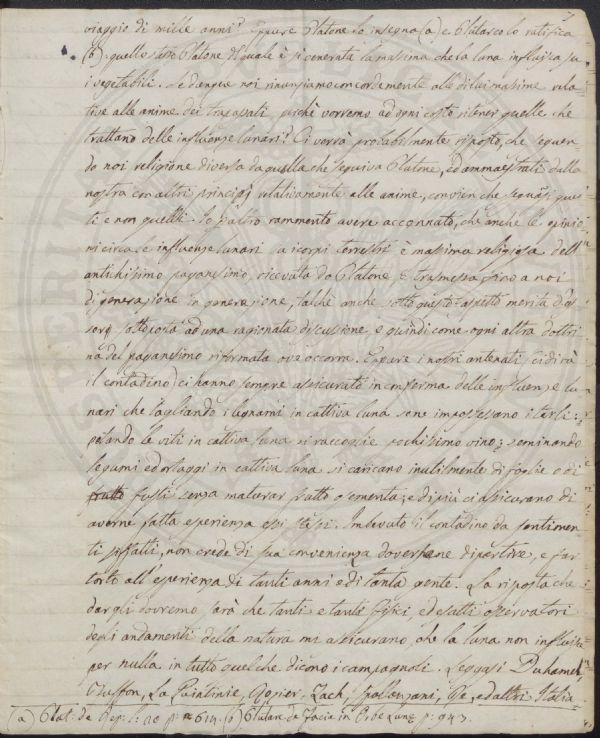 7
viaggio di mille anni? Eppure Platone lo insegna (a) e Plutarco lo ratifica
(b). quello stesso Platone dal quale è si generata la massima che la luna influisca su
i vegetabili. Se dunque noi rinunziamo concordemente alle di lui massime rela
tive alle anime dei trapassati, perchè vorremo ad ogni costo ritener quelle che
trattano delle influenze lunari? Ci verrà probabilmente risposto, che seguen
do noi religione diversa da quella che seguiva Platone, ed ammaestrati dalla
nostra con altri principj relativamente alle anime, convien che seguasi ques
ti e non quelli. Io peraltro rammento avere accennato, che anche le opinio
ni circa le influenze lunari su i corpi terrestri è massima religiosa dell'
antichissimo paganesimo, ricevuta da Platone, e trasmessa fino a noi
di generazione in generazione, talchè anche sotto questo aspetto merita d'es
ser sottoposta ad una ragionata discussione, e quindi come ogni altra dottri
na del paganesimo riformata ove occorra. Eppure i nostri antenati (ci dirà
il contadino) ci hanno sempre assicurato in conferma delle influenze lu
nari che tagliando i legnami in cattiva luna se ne impossessano i tarli:
potando le viti in cattiva luna si raccoglie pochissimo vino; seminando
legumi ed ortaggi in cattiva luna si caricano inutilmente di foglie o di
frutto fusti senza maturar frutto o sementa; e di più ci assicurano di
averne fatta esperienza essi stessi. Imbevuto il contadino da sentimen
ti siffatti, non crede di sua convenienza doversene dipartire, e far
torto all'esperienza di tanti anni e di tanta gente. La risposta che
dar gli dovremo, sarà che tanti e tanti fisici, ed esatti osservatori
degli andamenti della natura mi assicurano, che la luna non influisce
per nulla in tutto quel che dicono i campagnoli. Leggasi Duhamel,
Buffon, La Quintinie, Rozier, Zach, Spallanzani, Re, ed altri Italia
(a) Plat: de Rep: l: 10 p: 614. (b) Plutar. de Facie in Orbe Lunæ p: 943.